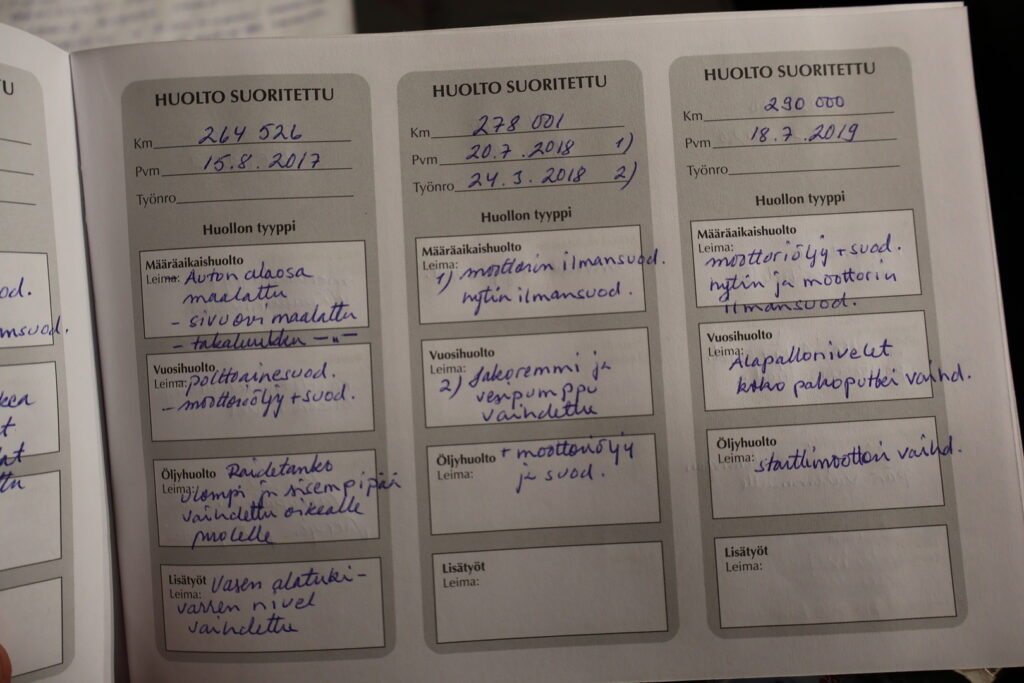 U
od.
msuod.
HUOLTO SUORITETTU
Km 264 526
Pvm 15.8. 2017
Työnro
Huollon tyyppi
Määräaikaishuolto
Leima: Auton alaosa
maalattu
- sivuovi maalattu
- takaluukku -"-
Vuosihuolto
Leima: polttoainesuod.
- moottoriöljy + suod.
Öljyhuolto Raidetanko
Leima: ulompi ja sisempi pää
vaihdettu oikealle
puolelle
Lisätyöt Vasen alatuki-
Leima: varren nivel
vaihdettu
HUOLTO SUORITETTU
Km 278 001
Pvm 20.7.2018 1)
Työnro 24.3.2018 2)
Huollon tyyppi
Määräaikaishuolto
Leima: 1) moottorin ilmansuod.
hytin ilmansuod.
Vuosihuolto
Leima:
2) Jakoremmi ja
vesipumppu
vaihdettu
Öljyhuolto + moottoriöljy
Leima: ja suod.
Lisätyöt
Leima:
HUOLTO SUORITETTU
Km 290 000
Pvm 18.7.2019
Työnro
Huollon tyyppi
Määräaikaishuolto
Leima: moottoriöljy + suod.
hytin ja moottorin
ilmansuod.
Vuosihuolto
Leima: Alapallonivelet
koko pakoputki vaihd.
Öljyhuolto
Leima: starttimoottori vaihd.
Lisätyöt
Leima: